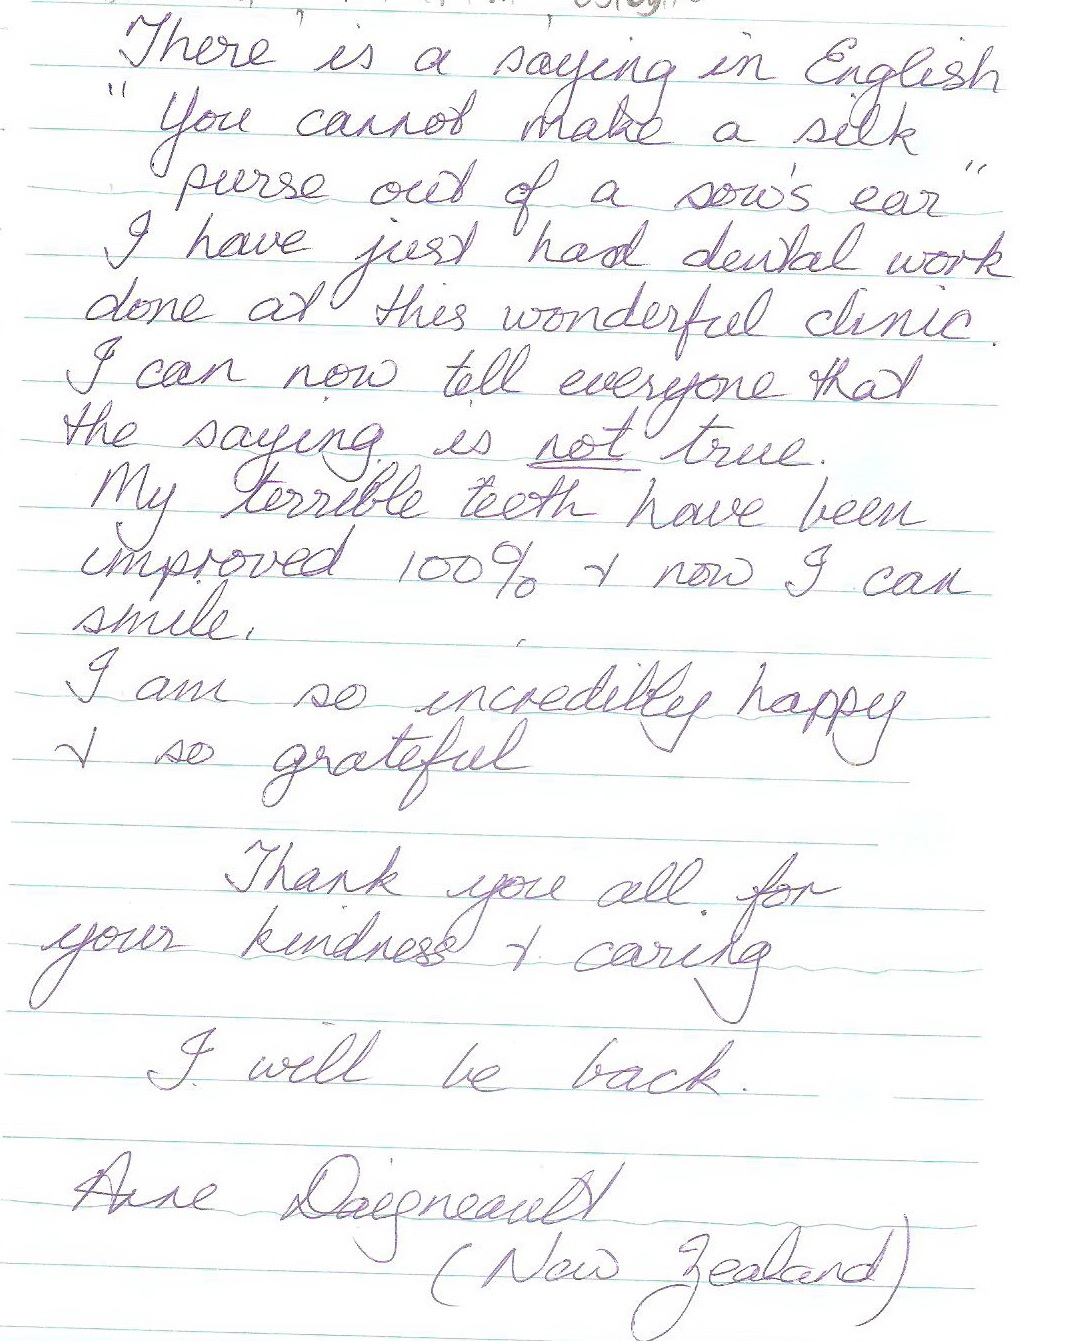 There is a saying in English
"You cannot make a silk
purse out of a sow's ear"
I have just had dental work
done at this wonderful clinic.
I can now tell everyone that
the saying is not true.
My terrible teeth have been
improved 100% & now I can
smile.
I am so incredibly happy
& so grateful
Thank you all for
your kindness & caring
I will be back.
Anne Daigneault
(New Zealand)